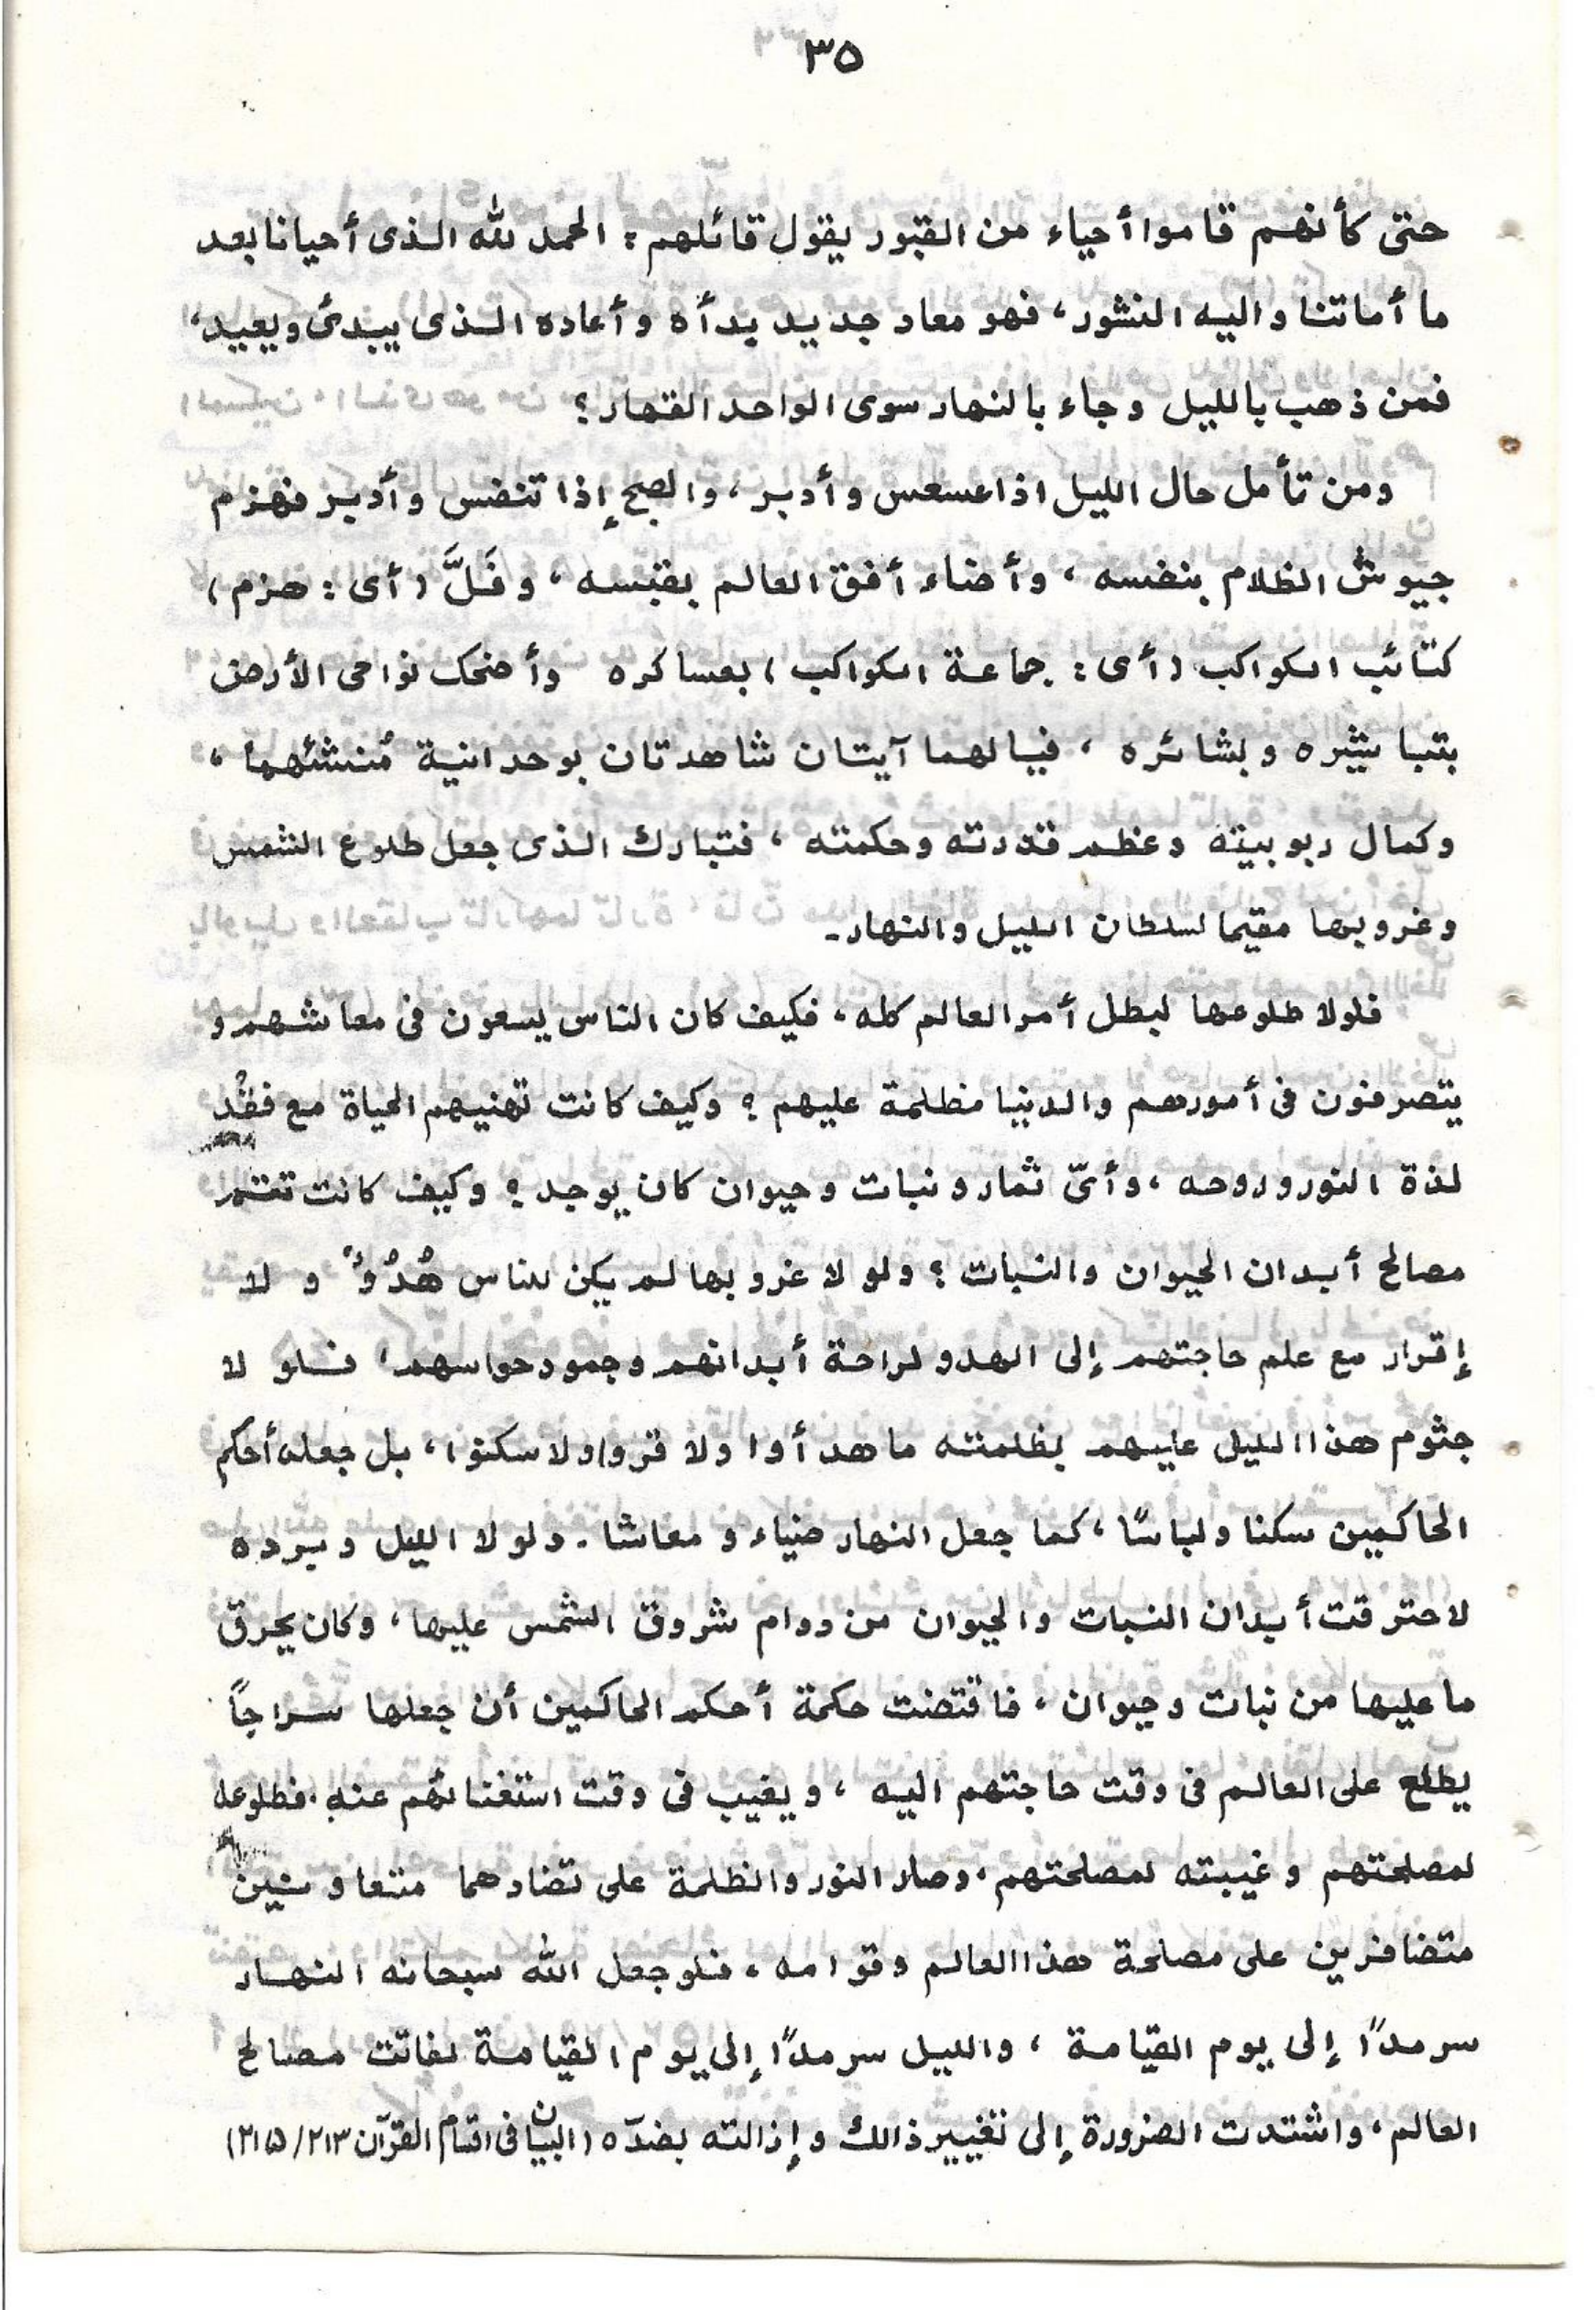 ٣٥
حتى كأنهم قاموا أحياء من القبور يقول قائلهم: الحمد لله الذى أحيانا بعد
ما أماتنا واليه النشور، فهو معاد جديد بدأه وأعاده الذى يبدئ ويعيد،
فمن ذهب بالليل وجاء بالنهار سوى الواحد القهار؟
ومن تأمل حال الليل اذا عسعس وأدبر، والصبح إذا تنفس وأدبر فهزم
جيوش الظلام بنفسه، وأضاء أفق العالم بقبسه، وفَلَّ (أى: هزم)
كتائب الكواكب (أى: جماعة الكواكب) بعساكره وأضحك نواحى الأرض
بتباشيره وبشائره، فيالهما آيتان شاهدتان بوحدانية مُنشئهما،
وكمال ربوبيته وعظم قدرته وحكمته، فتبارك الذى جعل طلوع الشمس
وغروبها مقيما لسلطان الليل والنهار۔
فلولا طلوعها لبطل أمر العالم كله، فكيف كان الناس يسعون فى معاشهم و
يتصرفون فى أمورهم والدنيا مظلمة عليهم؟ وكيف كانت تهنيهم الحياة مع فقْد
لذة النور وروحه، وأىّ ثمار ونبات وحيوان كان يوجد؟ وكيف كانت تعتمر
مصالح أبدان الحيوان والنبات؟ ولو لا غروبها لم يكن للناس هُدُوٌ و لا
إقرار مع علم حاجتهم إلى الهدو لراحة أبدانهم وجمود حواسهم، فلو لا
جثوم هذا الليل عليهم بظلمته ما هدأوا ولا قروا ولا سكنوا، بل جعله أحكم
الحاكمين سكنا ولباسًا، كما جعل النهار ضياء و معاشا. ولولا الليل وبرده
لاحترقت أبدان النبات والحيوان من دوام شروق الشمس عليها، وكان يحرق
ما عليها من نبات وحيوان، فاقتضت حكمة أحكم الحاكمين أن جعلها سراجاً
يطلع على العالم فى وقت حاجتهم اليه، ويغيب فى وقت استغنائهم عنه. فطلوعه
لمصلحتهم وغيبته لمصلحتهم، وصار النور والظلمة على تضادهما متعاونين
متضافرين على مصلحة هذا العالم وقوامه، فلو جعل الله سبحانه النهار
سرمدًا إلى يوم القيامة، والليل سرمدًا إلى يوم القيامة لفاتت مصالح
العالم، واشتدت الضرورة إلى تغيير ذالك وإزالته بضدّه (البيان فى اقسام القرآن ٢١٣/٢١٥)